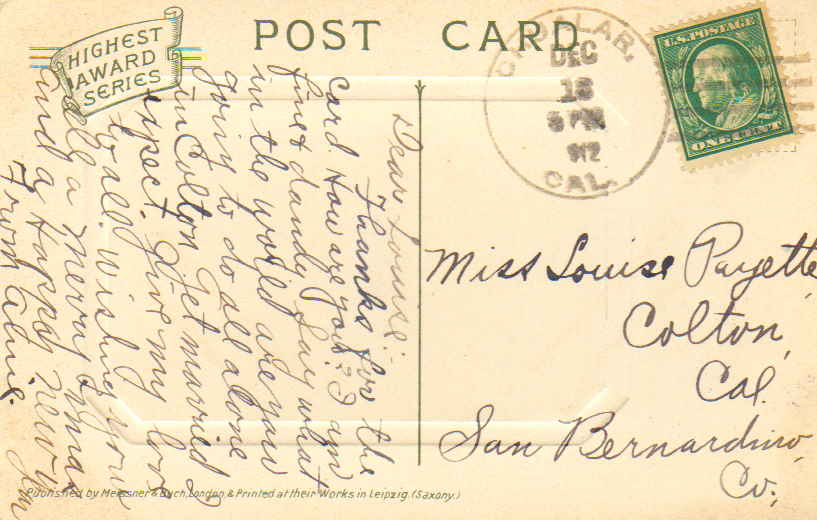 HIGHEST
AWARD
SERIES
POST CARD
DEC
18
PM
CAL.
U.S. POSTAGE
ONE CENT
Dear Louise:-
Thanks for the
card How are you? I am
fine & dandy Say what
in the world are you
going to do all alone
in Colton Get married I
expect. Give my love
to all. Wishing you
all a Merry Xmas
and a Happy New Year
From
Miss Louise Payette
Colton,
Cal.
San Bernardino,
Co.
Published by Meissner & Buch, London, & Printed at their Works in Leipzig. (Saxony.)